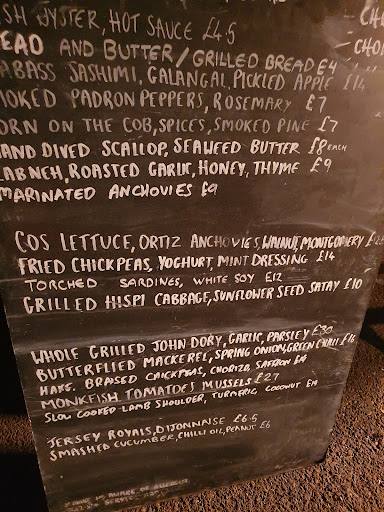 SH OYSTER, HOT SAUCE £4.5
EAD AND BUTTER / GRILLED BREAD £4
ABASS SASHIMI, GALANGAL, PICKLED APPLE £14
MOKED PADRON PEPPERS, ROSEMARY £7
ORN ON THE COB, SPICES, SMOKED PINE £7
AND DIVED SCALLOP, SEAWEED BUTTER £8 EACH
LABNEH, ROASTED GARLIC, HONEY, THYME £9
MARINATED ANCHOVIES £9
COS LETTUCE, ORTIZ ANCHOVIES, WALNUT, MONTGOMERY
FRIED CHICKPEAS, YOGHURT, MINT DRESSING £14
TORCHED SARDINES, WHITE SOY £12
GRILLED HISPI CABBAGE, SUNFLOWER SEED SATAY £10
WHOLE GRILLED JOHN DORY, GARLIC, PARSLEY £30
BUTTERFLIED MACKEREL, SPRING ONION, GREEN CHILLI £16
HAKE. BRAISED CHICKPEAS, CHORIZO, SAFFRON
MONKFISH TOMATOES MUSSELS £27
SLOW COOKED LAMB SHOULDER, TURMERIC, COCONUT
JERSEY ROYALS, DIJONNAISE £6.5
SMASHED CUCUMBER, CHILLI OIL, PEANUT £6